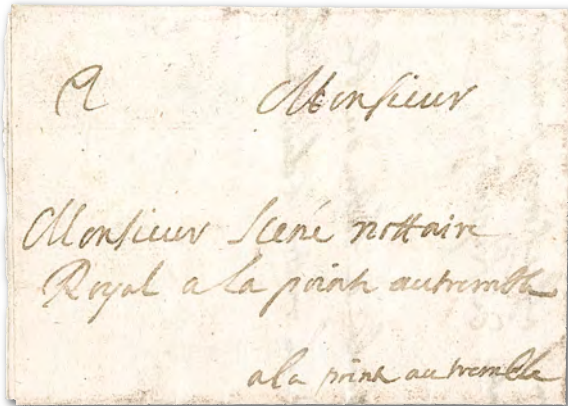 A Monsieur
Monsieur Scené nottaire
Royal a la point autremble
a la point au tremble